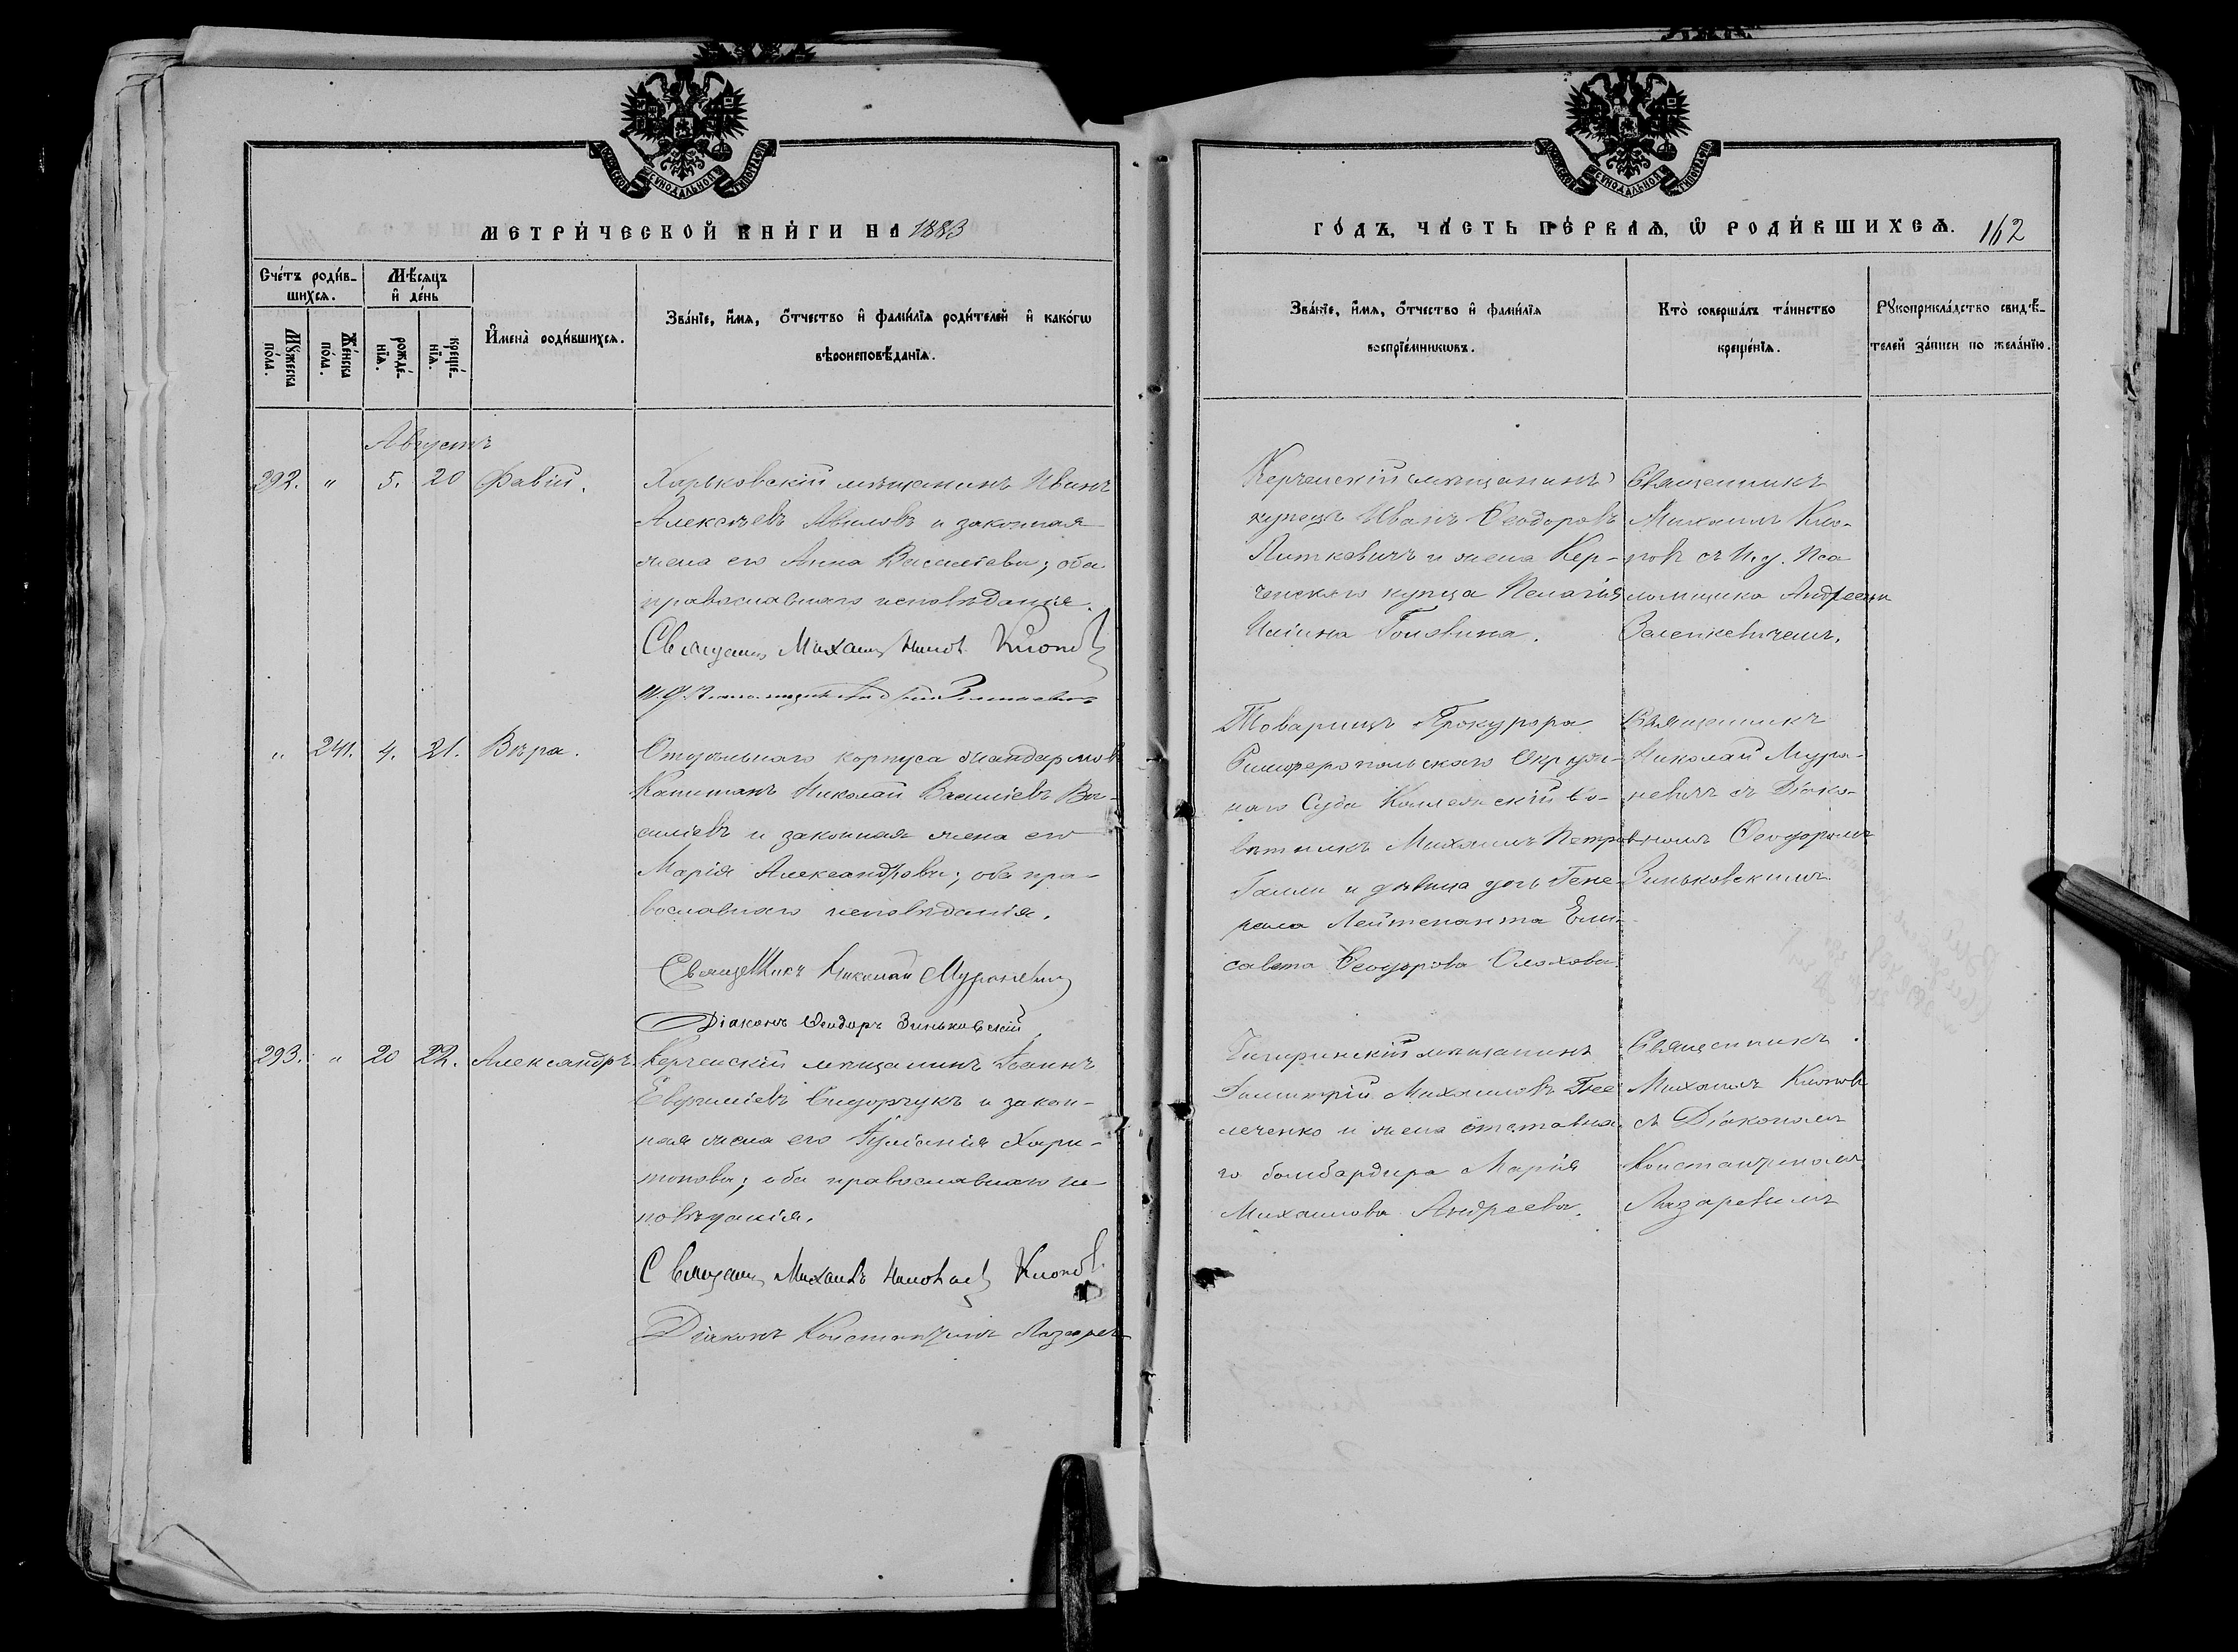 СѴНОДАЛЬНОЙ
СѴНОДАЛЬНОЙ
МЕТРИ́ЧЕСКОЙ КНИ́ГИ НА 1883
ГО́ДЪ, ЧА́СТЬ ПЕ́РВАѦ, Ѡ҆ РОДИ́ВШИХСѦ. 162
Сче́тъ роди́в-
шихсѧ.
Мѣ́сѧцъ
и҆ де́нь
Мꙋ́жеска
по́ла.
Же́нска
по́ла.
рожде́-
нїѧ.
креще́-
нїѧ.
И҆мена̀ роди́вшихсѧ.
Зва́нїе, и҆́мѧ, ѻ҆́тчество и҆ фами́лїѧ роди́телей и҆ како́гѡ
вѣроисповѣ́данїѧ.
Зва́нїе, и҆́мѧ, ѻ҆́тчество и҆ фами́лїѧ
воспрїе́мникѡвъ.
Кто̀ соверша́лъ та́инство
креще́нїѧ.
Рꙋкоприкла́дство свидѣ́-
телей за́писи по жела́нїю.
Августъ
292. " 5. 20 Фавій. Харьковскій мѣщанинъ Иванъ
Алексѣевъ и законная
жена его Анна Васильева; оба
православнаго исповѣданія.
Священ. Михаилъ Клоповъ
Керченскій (мѣщанинъ)
купецъ Иванъ Ѳеодоровъ
Литкевичъ и жена Кер-
ченскаго купца Пелагія
Ильина Головина.
Священникъ
Михаилъ Кло-
повъ съ И. д. Пса-
ломщика Андреемъ
Зеленкевичемъ.
" 241. 4. 21. Вѣра. Отдѣльнаго корпуса жандармовъ
Капитанъ Николай Василіевъ Ва-
силіевъ и законная жена его
Марія Александрова; оба пра-
вославнаго исповѣданія.
Священникъ Николай Мураневичъ
Діаконъ Ѳеодоръ Зиньковскій
Товарищъ Прокурора
Симферопольскаго Окруж-
наго Суда Коллежскій Со-
вѣтникъ Михаилъ Петровъ
и дѣвица дочь Гене-
рала Лейтенанта Ели-
савета Ѳеодорова
Священникъ
Николай Мура-
невичъ съ Діако-
номъ Ѳеодоромъ
Зиньковскимъ.
293. " 20 22. Александръ. Керченскій мѣщанинъ Іоаннъ
Евфиміевъ Сидорчукъ и закон-
ная жена его Іуліанія Хари-
тонова; оба православнаго ис-
повѣданія.
Священ. Михаилъ Клоповъ
Діаконъ Константинъ Лазаревъ
Чигиринскій мѣщанинъ
Димитрій Михаиловъ
и жена отставна-
го бомбардира Марія
Михаилова Андреева.
Священникъ
Михаилъ Клоповъ
съ Діакономъ
Константиномъ
Лазаревымъ